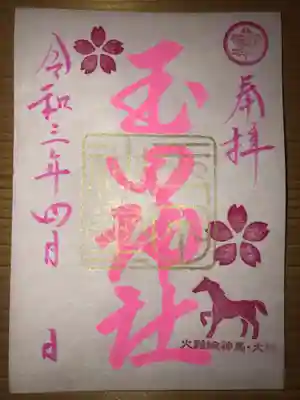 奉拝
玉田神社
令和三年四月 日
火難除神馬・大